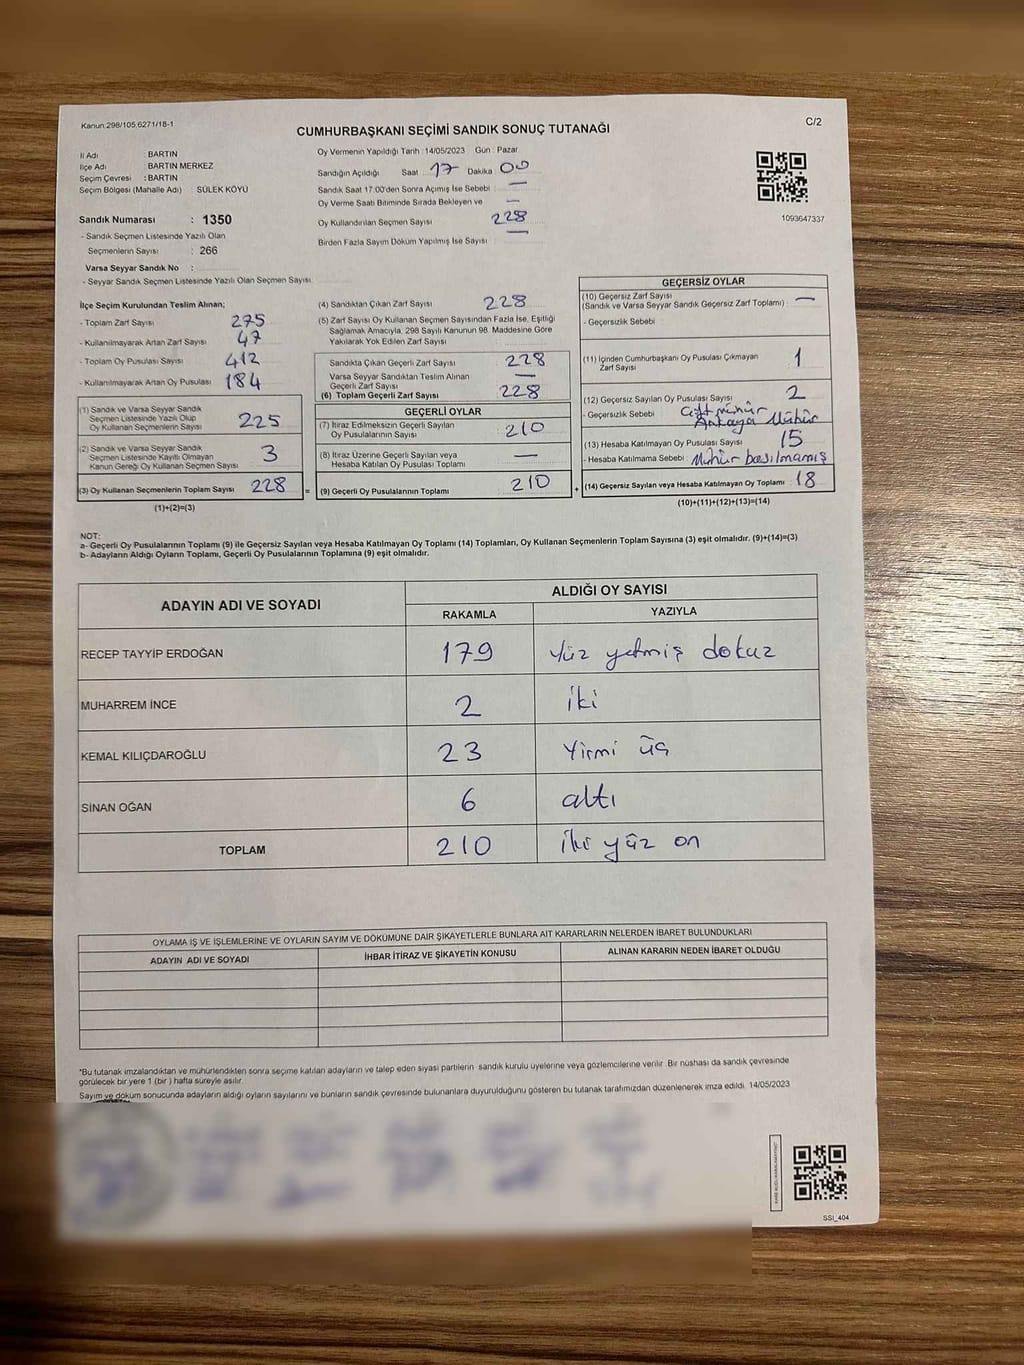 Kanun:298/105,6271/18-1
C/2
CUMHURBAŞKANI SEÇİMİ SANDIK SONUÇ TUTANAĞI
İl Adı : BARTIN
İlçe Adı : BARTIN MERKEZ
Seçim Çevresi : BARTIN
Seçim Bölgesi (Mahalle Adı) : SÜLEK KÖYÜ
Sandık Numarası : 1350
- Sandık Seçmen Listesinde Yazılı Olan
Seçmenlerin Sayısı : 266
Varsa Seyyar Sandık No :
- Seyyar Sandık Seçmen Listesinde Yazılı Olan Seçmen Sayısı:
Oy Vermenin Yapıldığı Tarih :14/05/2023 Gün : Pazar
Sandığın Açıldığı Saat : 17 Dakika : 00
Sandık Saat 17:00'den Sonra Açımış İse Sebebi : —
Oy Verme Saati Bitiminde Sırada Bekleyen ve —
Oy Kullandırılan Seçmen Sayısı 228
Birden Fazla Sayım Döküm Yapılmış İse Sayısı : —
1093647337
İlçe Seçim Kurulundan Teslim Alınan;
- Toplam Zarf Sayısı 275
- Kullanılmayarak Artan Zarf Sayısı : 47
- Toplam Oy Pusulası Sayısı : 412
- Kullanılmayarak Artan Oy Pusulası : 184
(1) Sandık ve Varsa Seyyar Sandık
Seçmen Listesinde Yazılı Olup
Oy Kullanan Seçmenlerin Sayısı : 225
(2) Sandık ve Varsa Seyyar Sandık
Seçmen Listesinde Kayıtlı Olmayan
Kanun Gereği Oy Kullanan Seçmen Sayısı : 3
(3) Oy Kullanan Seçmenlerin Toplam Sayısı : 228
(1)+(2)=(3)
=
(4) Sandıktan Çıkan Zarf Sayısı : 228
(5) Zarf Sayısı Oy Kullanan Seçmen Sayısından Fazla İse, Eşitliği
Sağlamak Amacıyla, 298 Sayılı Kanunun 98. Maddesine Göre
Yakılarak Yok Edilen Zarf Sayısı :
Sandıkta Çıkan Geçerli Zarf Sayısı : 228
Varsa Seyyar Sandıktan Teslim Alınan
Geçerli Zarf Sayısı : —
(6) Toplam Geçerli Zarf Sayısı : 228
GEÇERLİ OYLAR
(7) İtiraz Edilmeksizin Geçerli Sayılan
Oy Pusulalarının Sayısı : 210
(8) İtiraz Üzerine Geçerli Sayılan veya
Hesaba Katılan Oy Pusulası Toplamı : —
(9) Geçerli Oy Pusulalarının Toplamı : 210
+
GEÇERSİZ OYLAR
(10) Geçersiz Zarf Sayısı
(Sandık ve Varsa Seyyar Sandık Geçersiz Zarf Toplamı) : —
- Geçersizlik Sebebi :
(11) İçinden Cumhurbaşkanı Oy Pusulası Çıkmayan
Zarf Sayısı : 1
(12) Geçersiz Sayılan Oy Pusulası Sayısı : 2
- Geçersizlik Sebebi : çift mühür
Mühür
(13) Hesaba Katılmayan Oy Pusulası Sayısı : 15
- Hesaba Katılmama Sebebi : Mühür basılmamış
(14) Geçersiz Sayılan veya Hesaba Katılmayan Oy Toplamı : 18
(10)+(11)+(12)+(13)=(14)
NOT:
a- Geçerli Oy Pusulalarının Toplamı (9) ile Geçersiz Sayılan veya Hesaba Katılmayan Oy Toplamı (14) Toplamları, Oy Kullanan Seçmenlerin Toplam Sayısına (3) eşit olmalıdır. (9)+(14)=(3)
b- Adayların Aldığı Oyların Toplamı, Geçerli Oy Pusulalarının Toplamına (9) eşit olmalıdır.
ADAYIN ADI VE SOYADI
ALDIĞI OY SAYISI
RAKAMLA YAZIYLA
RECEP TAYYİP ERDOĞAN 179 Yüz yetmiş dokuz
MUHARREM İNCE 2 iki
KEMAL KILIÇDAROĞLU 23 Yirmi üç
SİNAN OĞAN 6 altı
TOPLAM 210 iki yüz on
OYLAMA İŞ VE İŞLEMLERİNE VE OYLARIN SAYIM VE DÖKÜMÜNE DAİR ŞİKAYETLERLE BUNLARA AİT KARARLARIN NELERDEN İBARET BULUNDUKLARI
ADAYIN ADI VE SOYADI İHBAR İTİRAZ VE ŞİKAYETİN KONUSU ALINAN KARARIN NEDEN İBARET OLDUĞU
*Bu tutanak imzalandıktan ve mühürlendikten sonra seçime katılan adayların ve talep eden siyasi partilerin sandık kurulu üyelerine veya gözlemcilerine verilir. Bir nüshası da sandık çevresinde
görülecek bir yere 1 (bir ) hafta süreyle asılır.
Sayım ve döküm sonucunda adayların aldığı oyların sayılarını ve bunların sandık çevresinde bulunanlara duyurulduğunu gösteren bu tutanak tarafımızdan düzenlenerek imza edildi. 14/05/2023
SSI_404